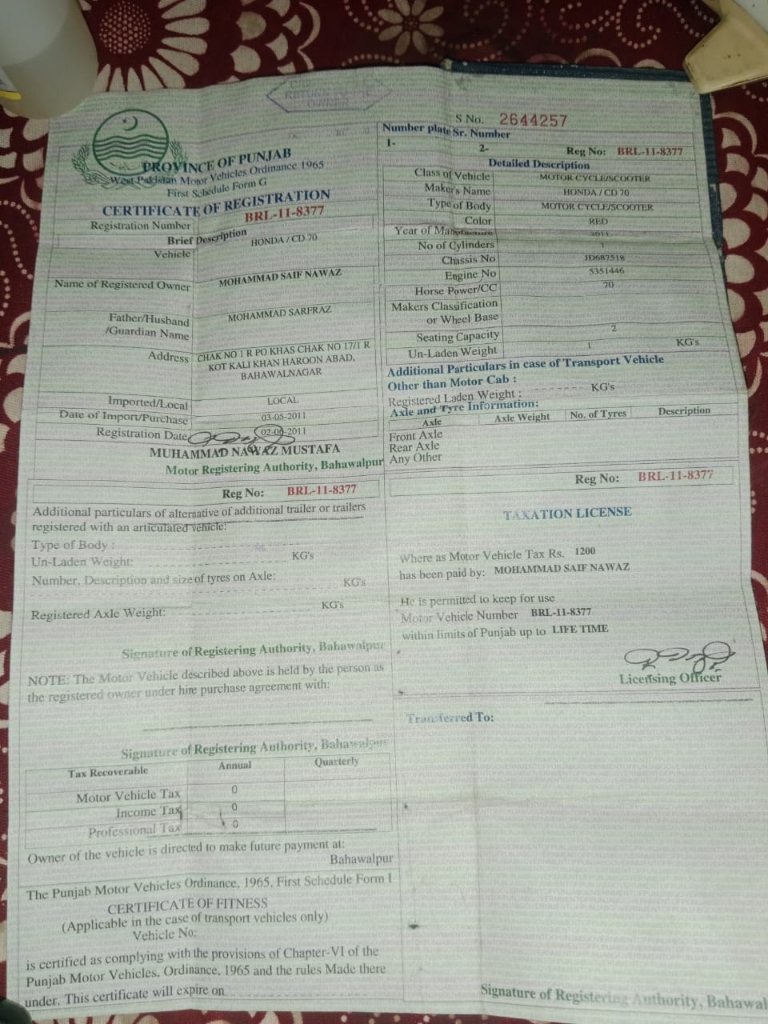 RETURN TO THE
OWNER
PROVINCE OF PUNJAB
West Pakistan Motor Vehicles Ordinance 1965
First Schedule Form G
CERTIFICATE OF REGISTRATION
Registration Number BRL-11-8377
Brief Description
Vehicle HONDA / CD 70
Name of Registered Owner MOHAMMAD SAIF NAWAZ
Father/Husband MOHAMMAD SARFRAZ
/Guardian Name
Address CHAK NO 1 R PO KHAS CHAK NO 17/1 R
KOT KALI KHAN HAROON ABAD,
BAHAWALNAGAR
Imported/Local LOCAL
Date of Import/Purchase 03-05-2011
Registration Date 02-06-2011
MUHAMMAD NAWAZ MUSTAFA
Motor Registering Authority, Bahawalpur
S No. 2644257
Number plate Sr. Number
1- 2- Reg No: BRL-11-8377
Detailed Description
Class of Vehicle MOTOR CYCLE/SCOOTER
Maker's Name HONDA / CD 70
Type of Body MOTOR CYCLE/SCOOTER
Color RED
Year of Manufacture 2011
No of Cylinders 1
Chassis No JD687518
Engine No 5351446
Horse Power/CC 70
Makers Classification
or Wheel Base
Seating Capacity 2
Un-Laden Weight 1 KG's
Additional Particulars in case of Transport Vehicle
Other than Motor Cab :
Registered Laden Weight : KG's
Axle and Tyre Information:
Axle Axle Weight No. of Tyres Description
Front Axle
Rear Axle
Any Other
Reg No: BRL-11-8377
Additional particulars of alternative of additional trailer or trailers
registered with an articulated vehicle:
Type of Body :
Un-Laden Weight: KG's
Number, Description and size of tyres on Axle: KG's
Registered Axle Weight: KG's
Signature of Registering Authority, Bahawalpur
NOTE: The Motor Vehicle described above is held by the person as
the registered owner under hire purchase agreement with:
Signature of Registering Authority, Bahawalpur
Tax Recoverable Annual Quarterly
Motor Vehicle Tax 0
Income Tax 0
Professional Tax 0
Owner of the vehicle is directed to make future payment at:
Bahawalpur
The Punjab Motor Vehicles Ordinance, 1965, First Schedule Form I
CERTIFICATE OF FITNESS
(Applicable in the case of transport vehicles only)
Vehicle No:
is certified as complying with the provisions of Chapter-VI of the
Punjab Motor Vehicles, Ordinance, 1965 and the rules Made there
under. This certificate will expire on
Reg No: BRL-11-8377
TAXATION LICENSE
Where as Motor Vehicle Tax Rs. 1200
has been paid by: MOHAMMAD SAIF NAWAZ
He is permitted to keep for use
Motor Vehicle Number BRL-11-8377
within limits of Punjab up to LIFE TIME
Licensing Officer
Transferred To:
Signature of Registering Authority, Bahawal